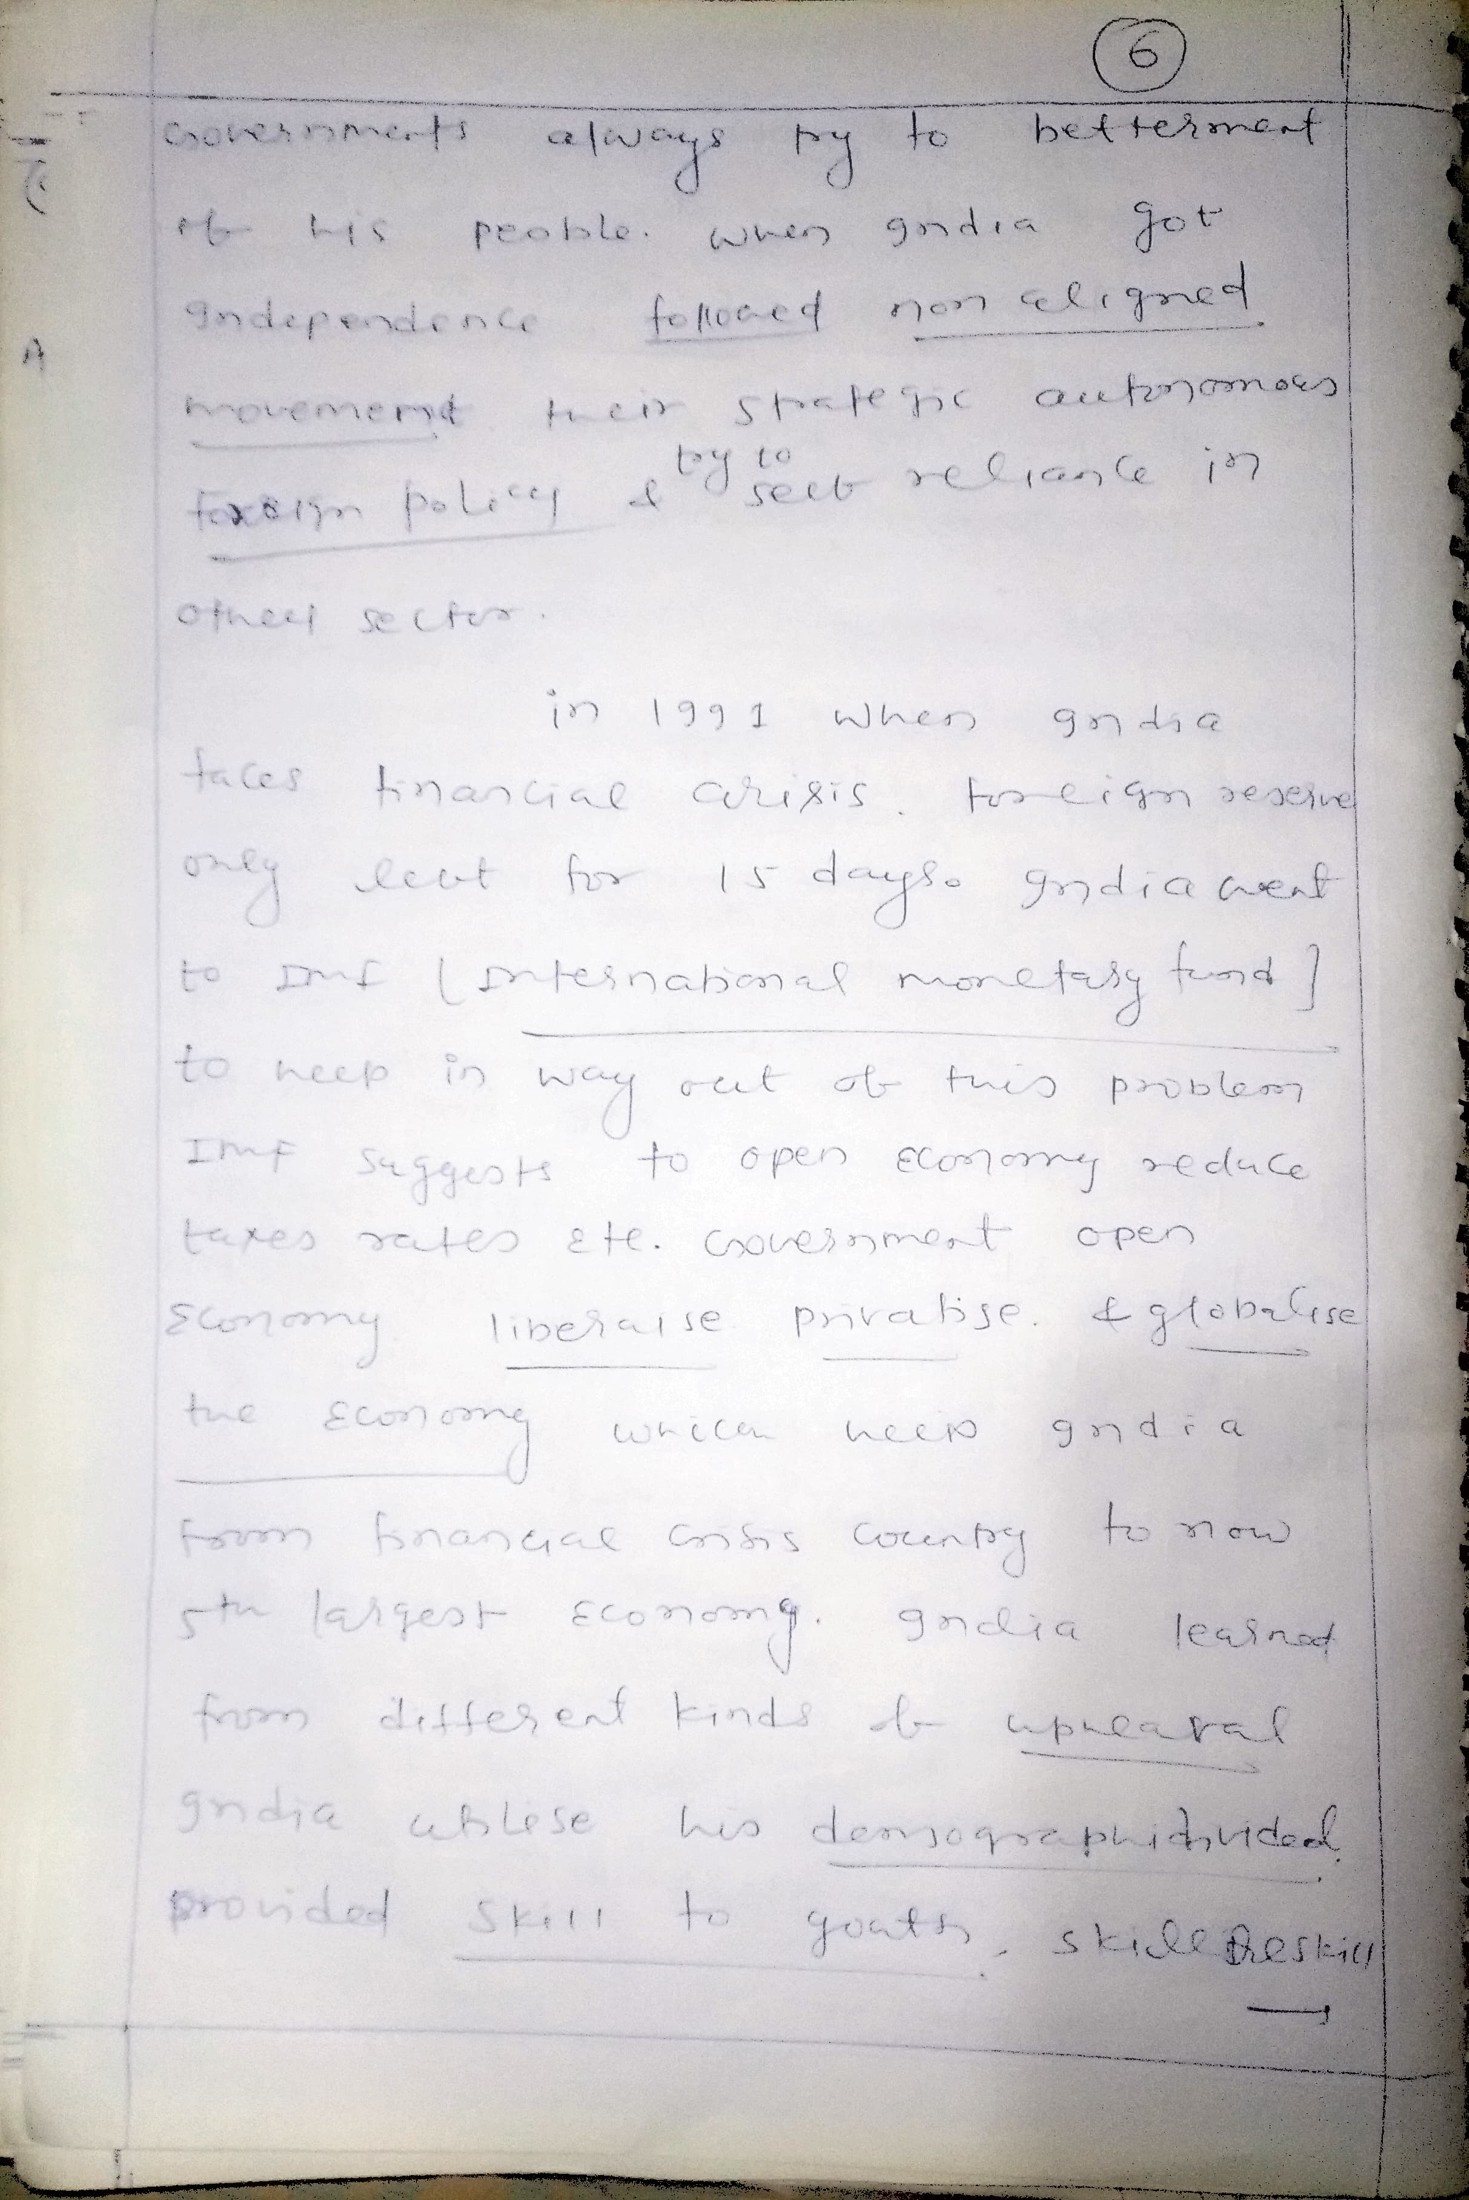 6
Governments always try to betterment
of his people. when India got
Independence followed non aligned
movement their strategic autonomous
foreign policy & try to self reliance in
other sector.
in 1991 when India
faces financial crisis. foreign reserve
only left for 15 days. India went
to IMF [International monetary fund]
to help in way out of this problem
IMF suggests to open economy reduce
taxes rates etc. Government open
Economy liberalise privatise. & globalise
the Economy which help India
from financial crisis country to now
5th largest Economy. India learned
from different kinds of upheaval
India utilise his demographic divided
provided skill to youth, skill Reskill